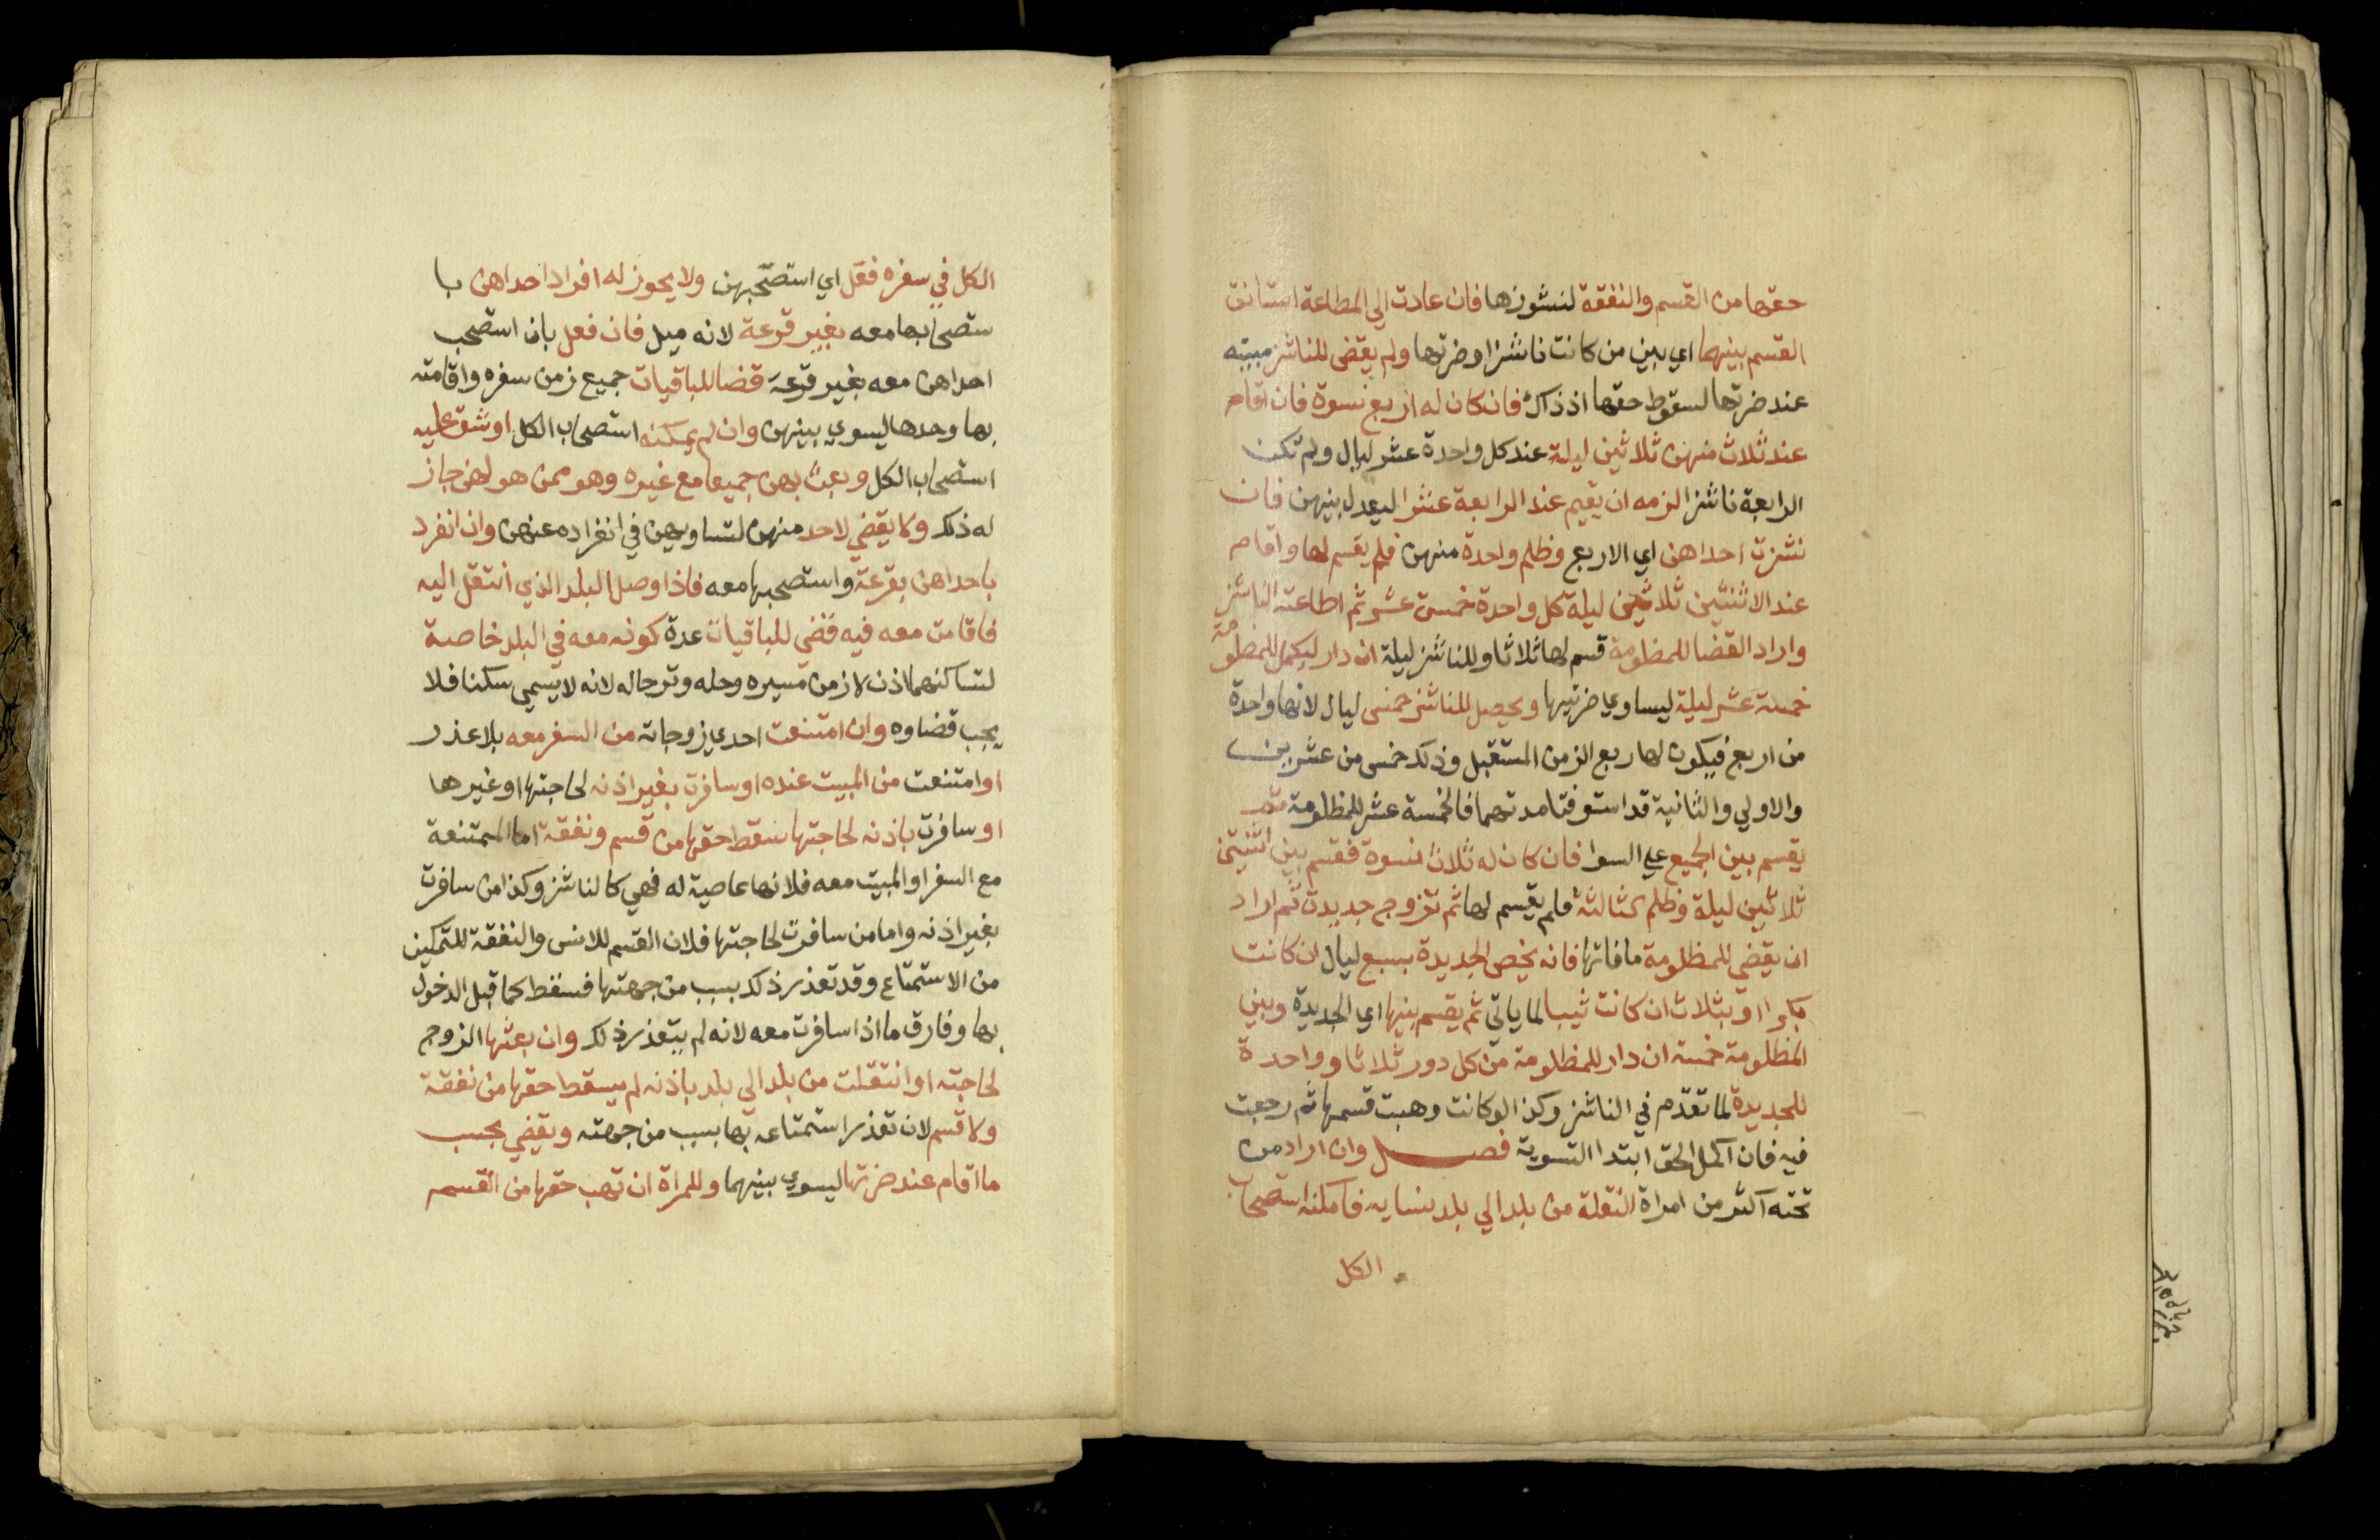 حقها من القسم والنفقة لنشوزها فان عادت الي المطاعة استانق
القسم بينهما اي بين من كانت ناشزا وضرتها ولم يقض للناشز مبيته
عند ضرتها لسقوط حقها اذ ذاك فان كان له اربع نسوة فان اقام
عند ثلاث منهن ثلاثين ليلة عند كل واحدة عشر ليال ولم تكن
الرابعة ناشزا لزمه ان يقيم عند الرابعة عشرا ليعدل بينهن فان
نشزت احداهن اي الاربع وظلم واحدة منهن فلم يقسم لها واقام
عند الاثنتين ثلاثين ليلة كل واحدة خمسة عشر ثم اطاعته الناشز
واراد القضا للمظلومة قسم لها ثلاثا وللناشز ليلة ان دار ليكمل للمظلومة
خمسة عشر ليلة ليساوي ضرتيها ويحصل للناشز خمس ليال لانها واحدة
من اربع فيكون لها ربع الزمن المستقبل وذلك خمس من عشرين
والاولي والثانية قد استوفتا مدتهما فالخمسة عشر للمظلومة ثم
يقسم بين الجميع علي السوا فان كان له ثلاث نسوة فقسم بين اثنتين
ثلاثين ليلة وظلم الثالثة فلم يقسم لها ثم تزوج جديدة ثم اراد
ان يقضي للمظلومة ما فاتها فانه يخص الجديدة بسبع ليال ان كانت
بكرا او بثلاث ان كانت ثيبا لما ياتي ثم يقسم بينها اي الجديدة وبين
المظلومة خمسة ان دار للمظلومة من كل دور ثلاثا وواحدة
للجديدة لما تقدم في الناشز وكذا لو كانت وهبت قسمها ثم رجعت
فيه فان اكمل الحق ابتدا التسوية فصل وان اراد من
تحته اكثر من امراة النقلة من بلد الي بلد بنسايه فامكنه استصحاب
الكل
الكل في سفره فعل اي استصحبهن ولا يجوز له افراد احداهن با
ستصحابها معه بغير قرعة لانه ميل فان فعل بان استصحب
احداهن معه بغير قرعة قضا للباقيات جميع زمن سفره واقامته
بها وحدها ليسوي بينهن وان لم يمكنه استصحاب الكل او شق عليه
استصحاب الكل وبعث بهن جميعا مع غيره وهو ممن هو لهن جاز
له ذلك ولا يقضي لاحد منهن لتساويهن في انفراده عنهن وان انفرد
باحداهن بقرعة واستصحبها معه فاذا وصل البلد الذي انتقل اليه
فاقامت معه فيه قضي للباقيات عدة كونه معه في البلد خاصة
لتساكنهما اذن لا زمن مسيره وحله وترحاله لانه لا يسمي سكنا فلا
يجب قضاوه وان امتنعت احدي زوجاته من السفر معه بلا عذر
او امتنعت من المبيت عنده او سافرت بغير اذنه لحاجتها او غيرها
او سافرت باذنه لحاجتها سقط حقها من قسم ونفقة اما الممتنعة
مع السفر او المبيت معه فلانها عاصية له فهي كالناشز وكذا من سافرت
بغير اذنه واما من سافرت لحاجتها فلان القسم للانس والنفقة للتمكين
من الاستمتاع وقد تعذر ذلك بسبب من جهتها فسقط كما قبل الدخول
بها وفارق ما اذا سافرت معه لانه لم يتعذر ذلك وان بعثها الزوج
لحاجته او انتقلت من بلد الي بلد باذنه لم يسقط حقها من نفقة
ولا قسم لان تعذر استمتاعه بها بسبب من جهته ويقضي بحسب
ما اقام عند ضرتها ليسوي بينهما وللمراة ان تهب حقها من القسم